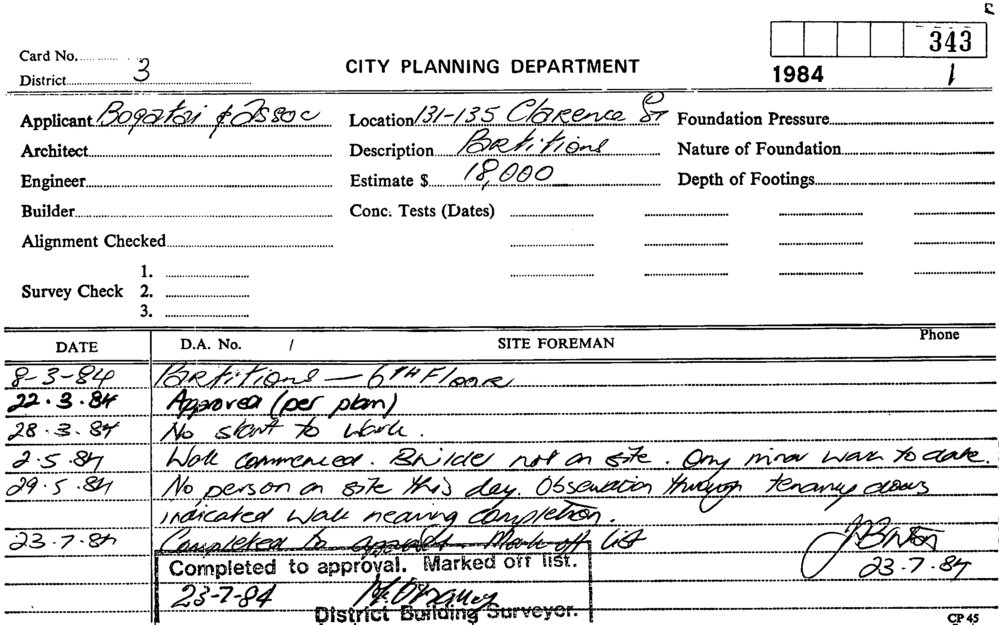 343
Card No.
District 3
CITY PLANNING DEPARTMENT
1984 1
Applicant Bogatai & Assoc Location 131-135 Clarence St Foundation Pressure
Architect Description Partitions Nature of Foundation
Engineer Estimate $ 18,000 Depth of Footings
Builder Conc. Tests (Dates)
Alignment Checked
1.
Survey Check 2.
3.
DATE D.A. No. / SITE FOREMAN Phone
8-3-84 Partitions — 6TH Floor
22.3.84 Approved (per plan)
28.3.84 No start to work.
2.5.84 Work commenced. Builder not on site. Only minor work to date.
29.5.84 No person on site this day. Observation through tenancy doors
indicated work nearing completion.
23.7.84 Completed to approval Mark off list
23.7.84
Completed to approval. Marked off list.
23-7-84
District Building Surveyor.
CP 45